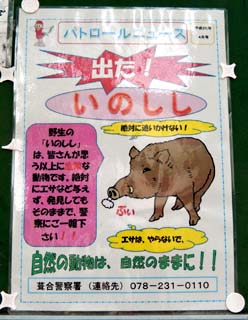 パトロールニュース
4月号
出た!
いのしし
絶対に追いかけない!
野生の
「いのしし」
は、皆さんが思
う以上に危険な
動物です。絶対
にエサなど与え
ず、発見しても
そのままで、警
察にご一報下
さい!!
ぶぃ
エサは、やらないで、
自然の動物は、自然のままに!!
葺合警察署 (連絡先) 078-231-0110